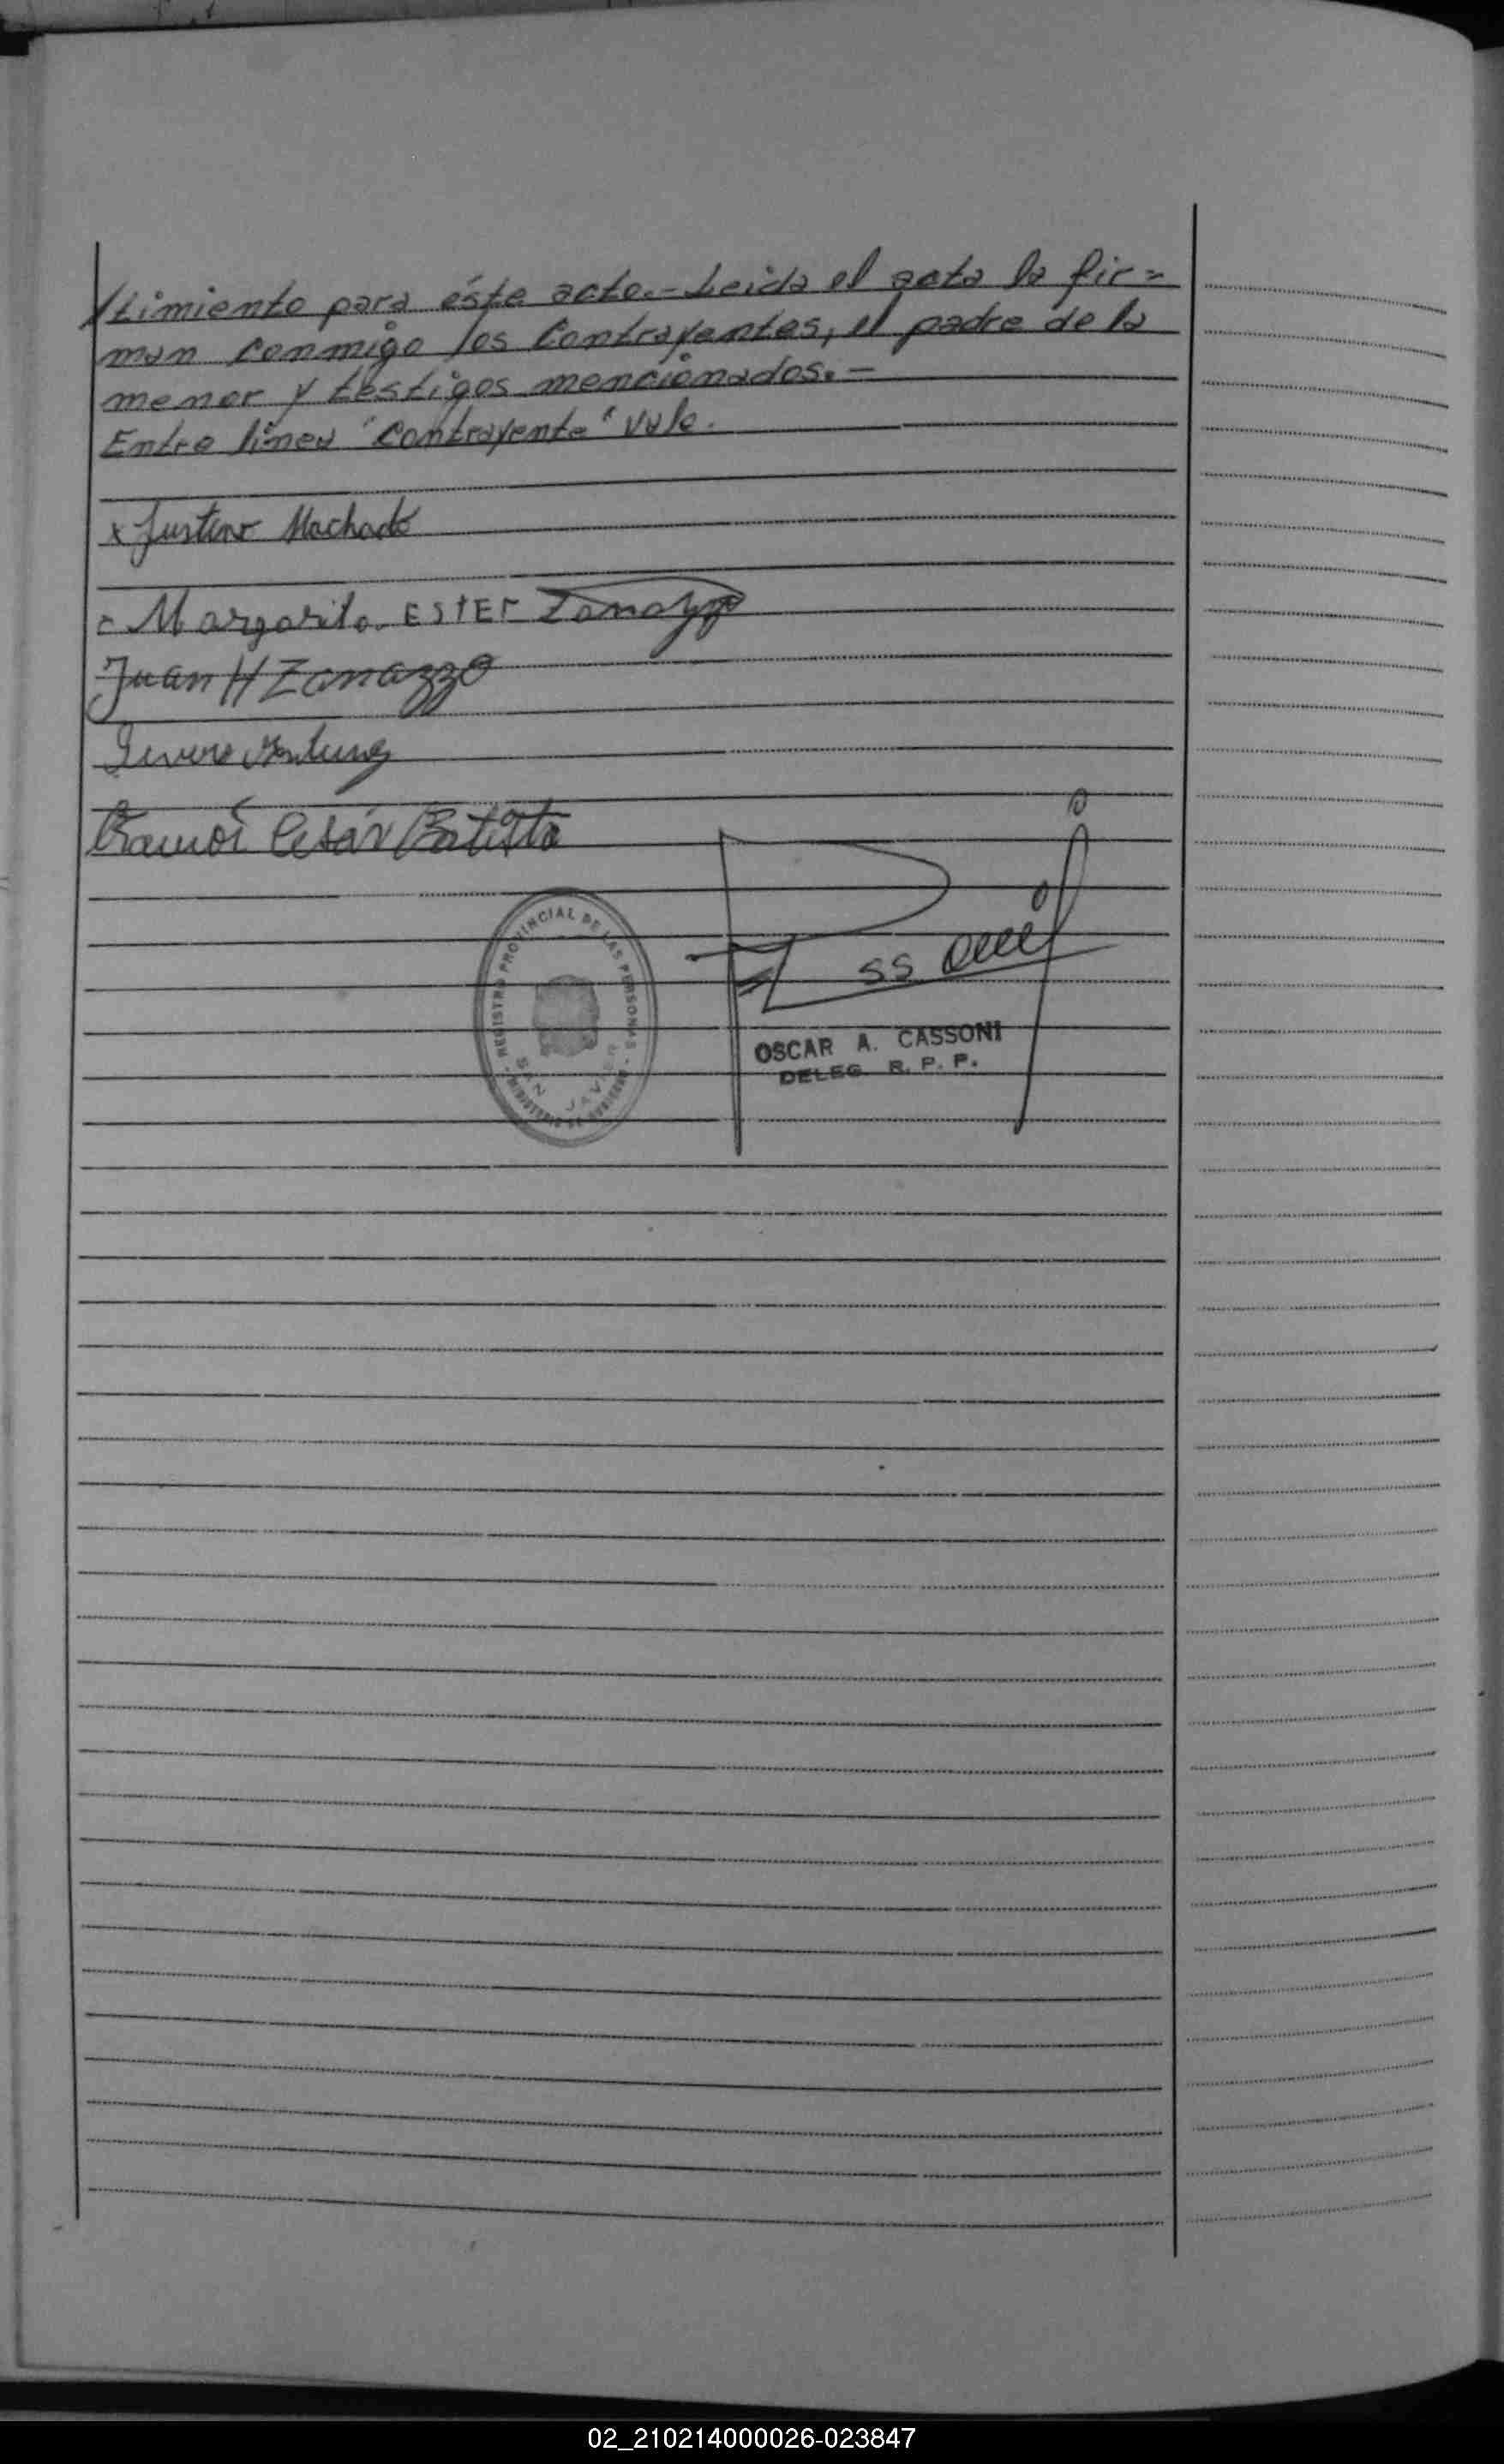 /timiento para éste acto.- Leida el acta la fir=
man conmigo los Contrayentes, el padre de la
menor y testigos mencionados.-
Entre línea "Contrayente" vale.
x Justino Machado
Margarita ESTER Zamazzo
Juan H Zamazzo
Ramón César Batista
REGISTRO PROVINCIAL DE LAS PERSONAS
SAN JAVIER
MINISTERIO DE GOBIERNO
OSCAR A. CASSONI
DELEG. R. P. P.
02_210214000026-023847